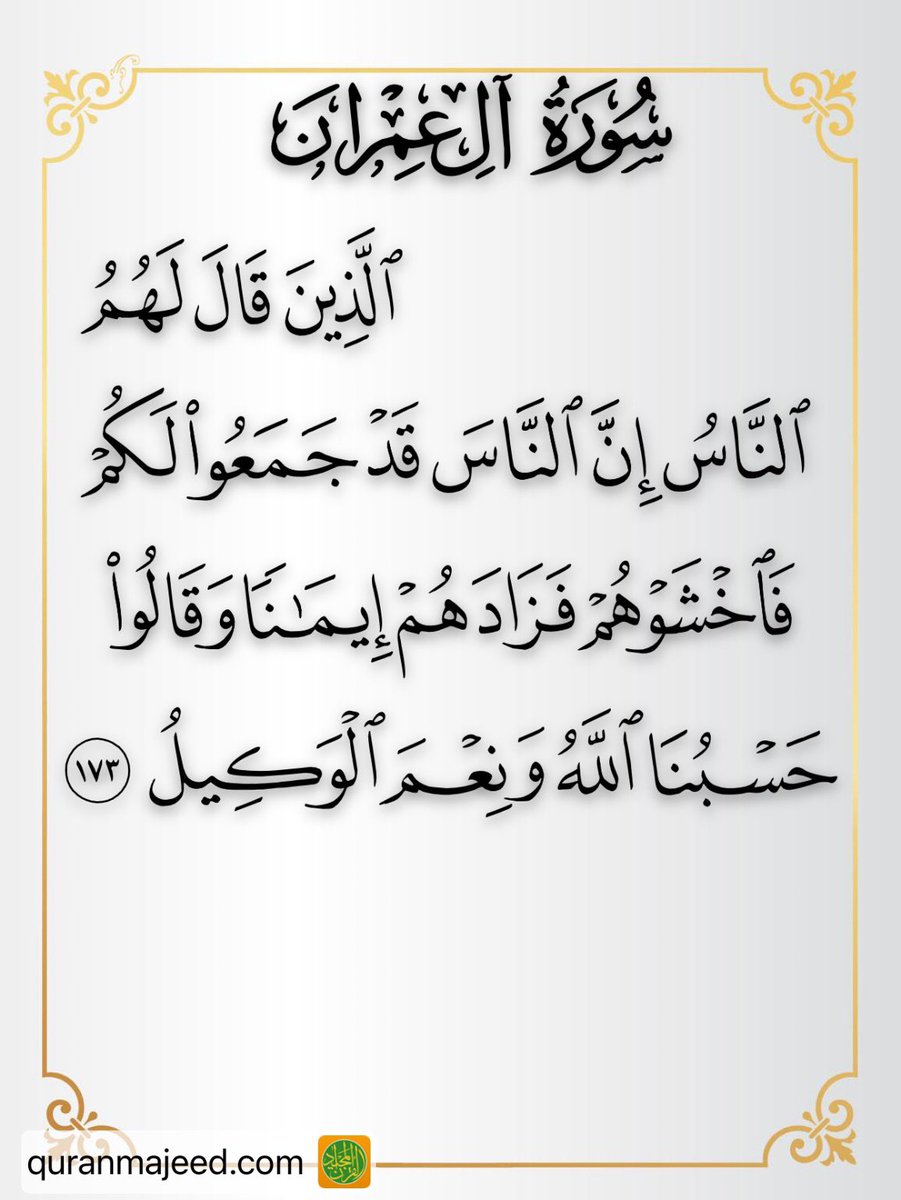 سُورَةُ آلِ عِمْرَانَ
ٱلَّذِينَ قَالَ لَهُمُ
ٱلنَّاسُ إِنَّ ٱلنَّاسَ قَدۡ جَمَعُواْ لَكُمۡ
فَٱخۡشَوۡهُمۡ فَزَادَهُمۡ إِيمَٰنٗا وَقَالُواْ
حَسۡبُنَا ٱللَّهُ وَنِعۡمَ ٱلۡوَكِيلُ ١٧٣
quranmajeed.com